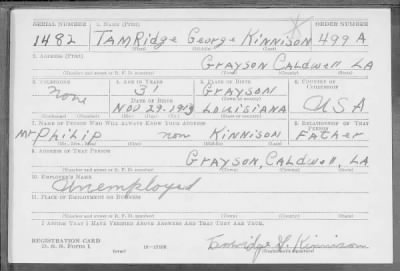 SERIAL NUMBER 1. NAME (Print) ORDER NUMBER
1482 TAMRidge George KINNISON 499 A
(First) (Middle) (Last)
2. ADDRESS (Print)
GRAYSON CALDWELL LA
(Number and street or R. F. D. number) (Town) (County) (State)
3. TELEPHONE 4. AGE IN YEARS 5. PLACE OF BIRTH 6. COUNTRY OF CITIZENSHIP
none 31 GRAYSON
DATE OF BIRTH (Town or county)
NOV 29.1913 LOUISIANA USA
(Exchange) (Number) (Mo.) (Day) (Yr.) (State or country)
7. NAME OF PERSON WHO WILL ALWAYS KNOW YOUR ADDRESS 8. RELATIONSHIP OF THAT PERSON
Mr PHILIP non KINNISON FATHER
(Mr., Mrs., Miss) (First) (Middle) (Last)
9. ADDRESS OF THAT PERSON
GRAYSON, CALDWELL, LA
(Number and street or R. F. D. number) (Town) (County) (State)
10. EMPLOYER'S NAME
Unemployed
11. PLACE OF EMPLOYMENT OR BUSINESS
(Number and street or R. F. D. number) (Town) (County) (State)
I AFFIRM THAT I HAVE VERIFIED ABOVE ANSWERS AND THAT THEY ARE TRUE.
REGISTRATION CARD
D. S. S. Form 1 Kinnison
(Registrant's signature)